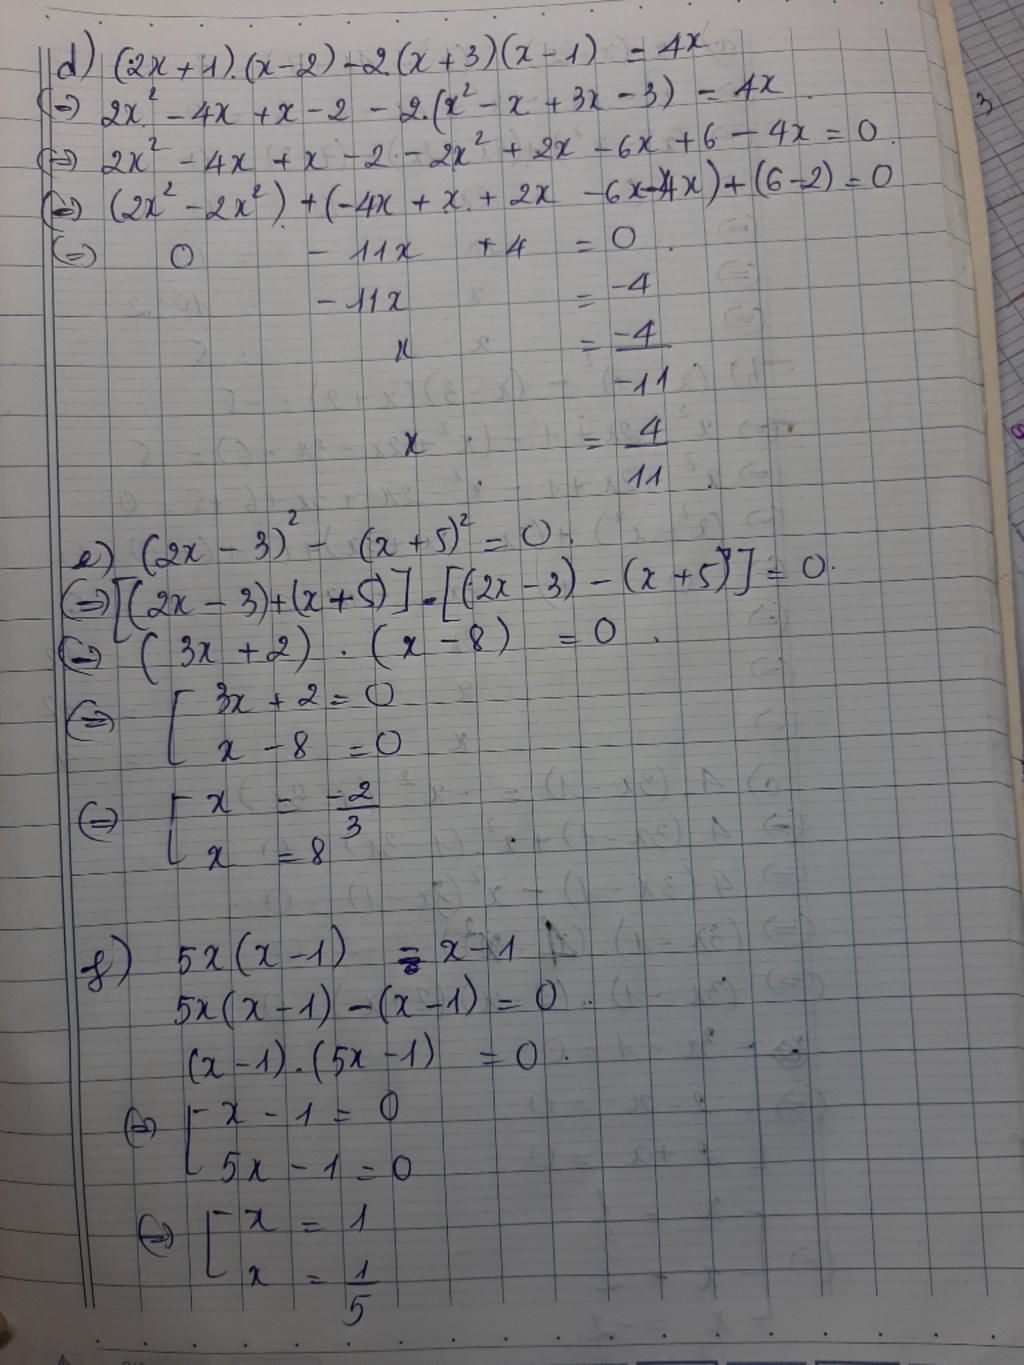 d) (2x+1).(x-2) - 2.(x+3)(x-1) = 4x
(=) 2x² - 4x + x - 2 - 2.(x² - x + 3x - 3) = 4x
(=) 2x² - 4x + x - 2 - 2x² + 2x - 6x + 6 - 4x = 0.
(=) (2x² - 2x²) + (-4x + x + 2x - 6x - 4x) + (6-2) = 0
(=) 0 - 11x + 4 = 0.
-11x = -4
x = -4/-11
x = 4/11
e) (2x - 3)² - (x + 5)² = 0.
(=) [(2x - 3) + (x + 5)] . [(2x - 3) - (x + 5)] = 0.
(=) (3x + 2) . (x - 8) = 0.
(=) [ 3x + 2 = 0
x - 8 = 0
(=) [ x = -2/3
x = 8
f) 5x(x - 1) = x - 1
5x(x - 1) - (x - 1) = 0.
(x - 1).(5x - 1) = 0.
(=) [ x - 1 = 0
5x - 1 = 0
(=) [ x = 1
x = 1/5